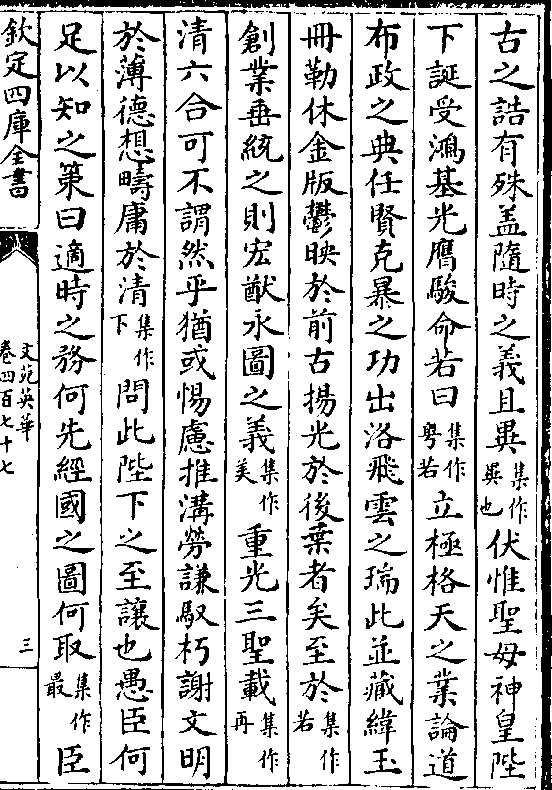 古之誥有殊盖隨時之義且異集作異也伏惟聖母神皇陛
下誕受鴻基光膺駿命若曰集作粤若立極格天之業論道
布政之典任賢克暴之功出洛飛雲之瑞此並藏緯玉
冊勒休金版鬱映於前古揚光於後葉者矣至於集作若
創業垂統之則宏猷永圖之義集作美重光三聖載集作再
清六合可不謂然乎猶或惕慮推溝勞謙馭朽謝文明
於薄德想疇庸於清集作下問此陛下之至讓也愚臣何
足以知之第曰適時之務何先經國之圖何取集作最臣
欽定四庫全書
文苑英華
卷四百七十七
三